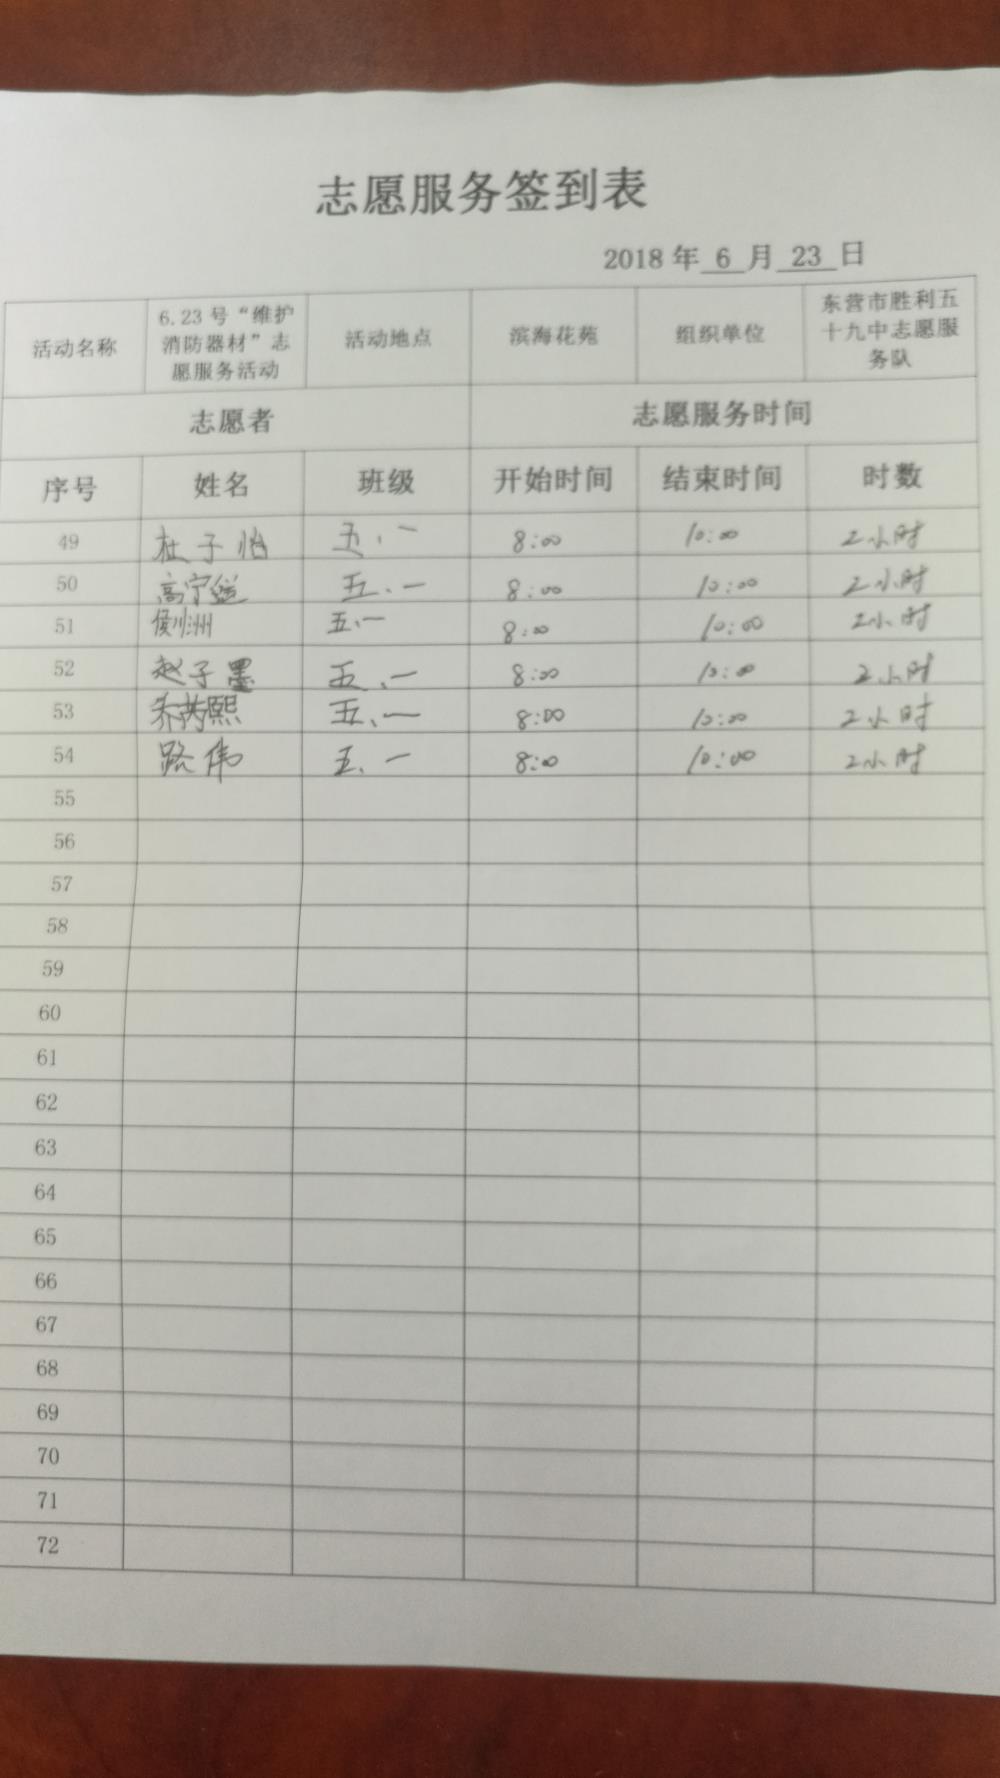 志愿服务签到表
2018 年 6 月 23 日
活动名称 6.23 号“维护消防器材”志愿服务活动 活动地点 滨海花苑 组织单位 东营市胜利五十九中志愿服务队
志愿者 志愿服务时间
序号 姓名 班级 开始时间 结束时间 时数
49 杜子怡 五.一 8:00 10:00 2小时
50 高宁 五.一 8:00 10:00 2小时
51 五.一 8:00 10:00 2小时
52 赵子墨 五.一 8:00 10:00 2小时
53 乔芮熙 五.一 8:00 10:00 2小时
54 路伟 五.一 8:00 10:00 2小时
55
56
57
58
59
60
61
62
63
64
65
66
67
68
69
70
71
72